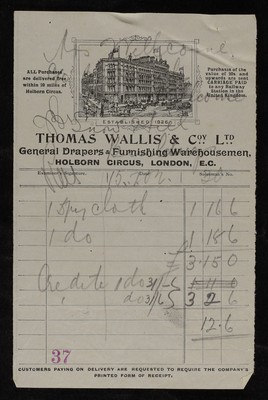 Mr Wellcome
ALL Purchases
are delivered free
within 30 miles of
Holborn Circus.
Purchases of the
value of 20s and
upwards are sent
CARRIAGE PAID
to any Railway
Station in the
United Kingdom.
Snow Hill
ESTABLISHED 1826
THOMAS WALLIS & COY. LTD
General Drapers & Furnishing Warehousemen,
HOLBORN CIRCUS, LONDON, E.C.
Examiner's Signature.
Salesman's No.
15
1 cloth 1 16 6
1 do 1 18 6
£ 3 15 0
Credit 1 do 31/6
1 do 31/6 3 2 6
12.6
37
CUSTOMERS PAYING ON DELIVERY ARE REQUESTED TO REQUIRE THE COMPANY'S
PRINTED FORM OF RECEIPT.